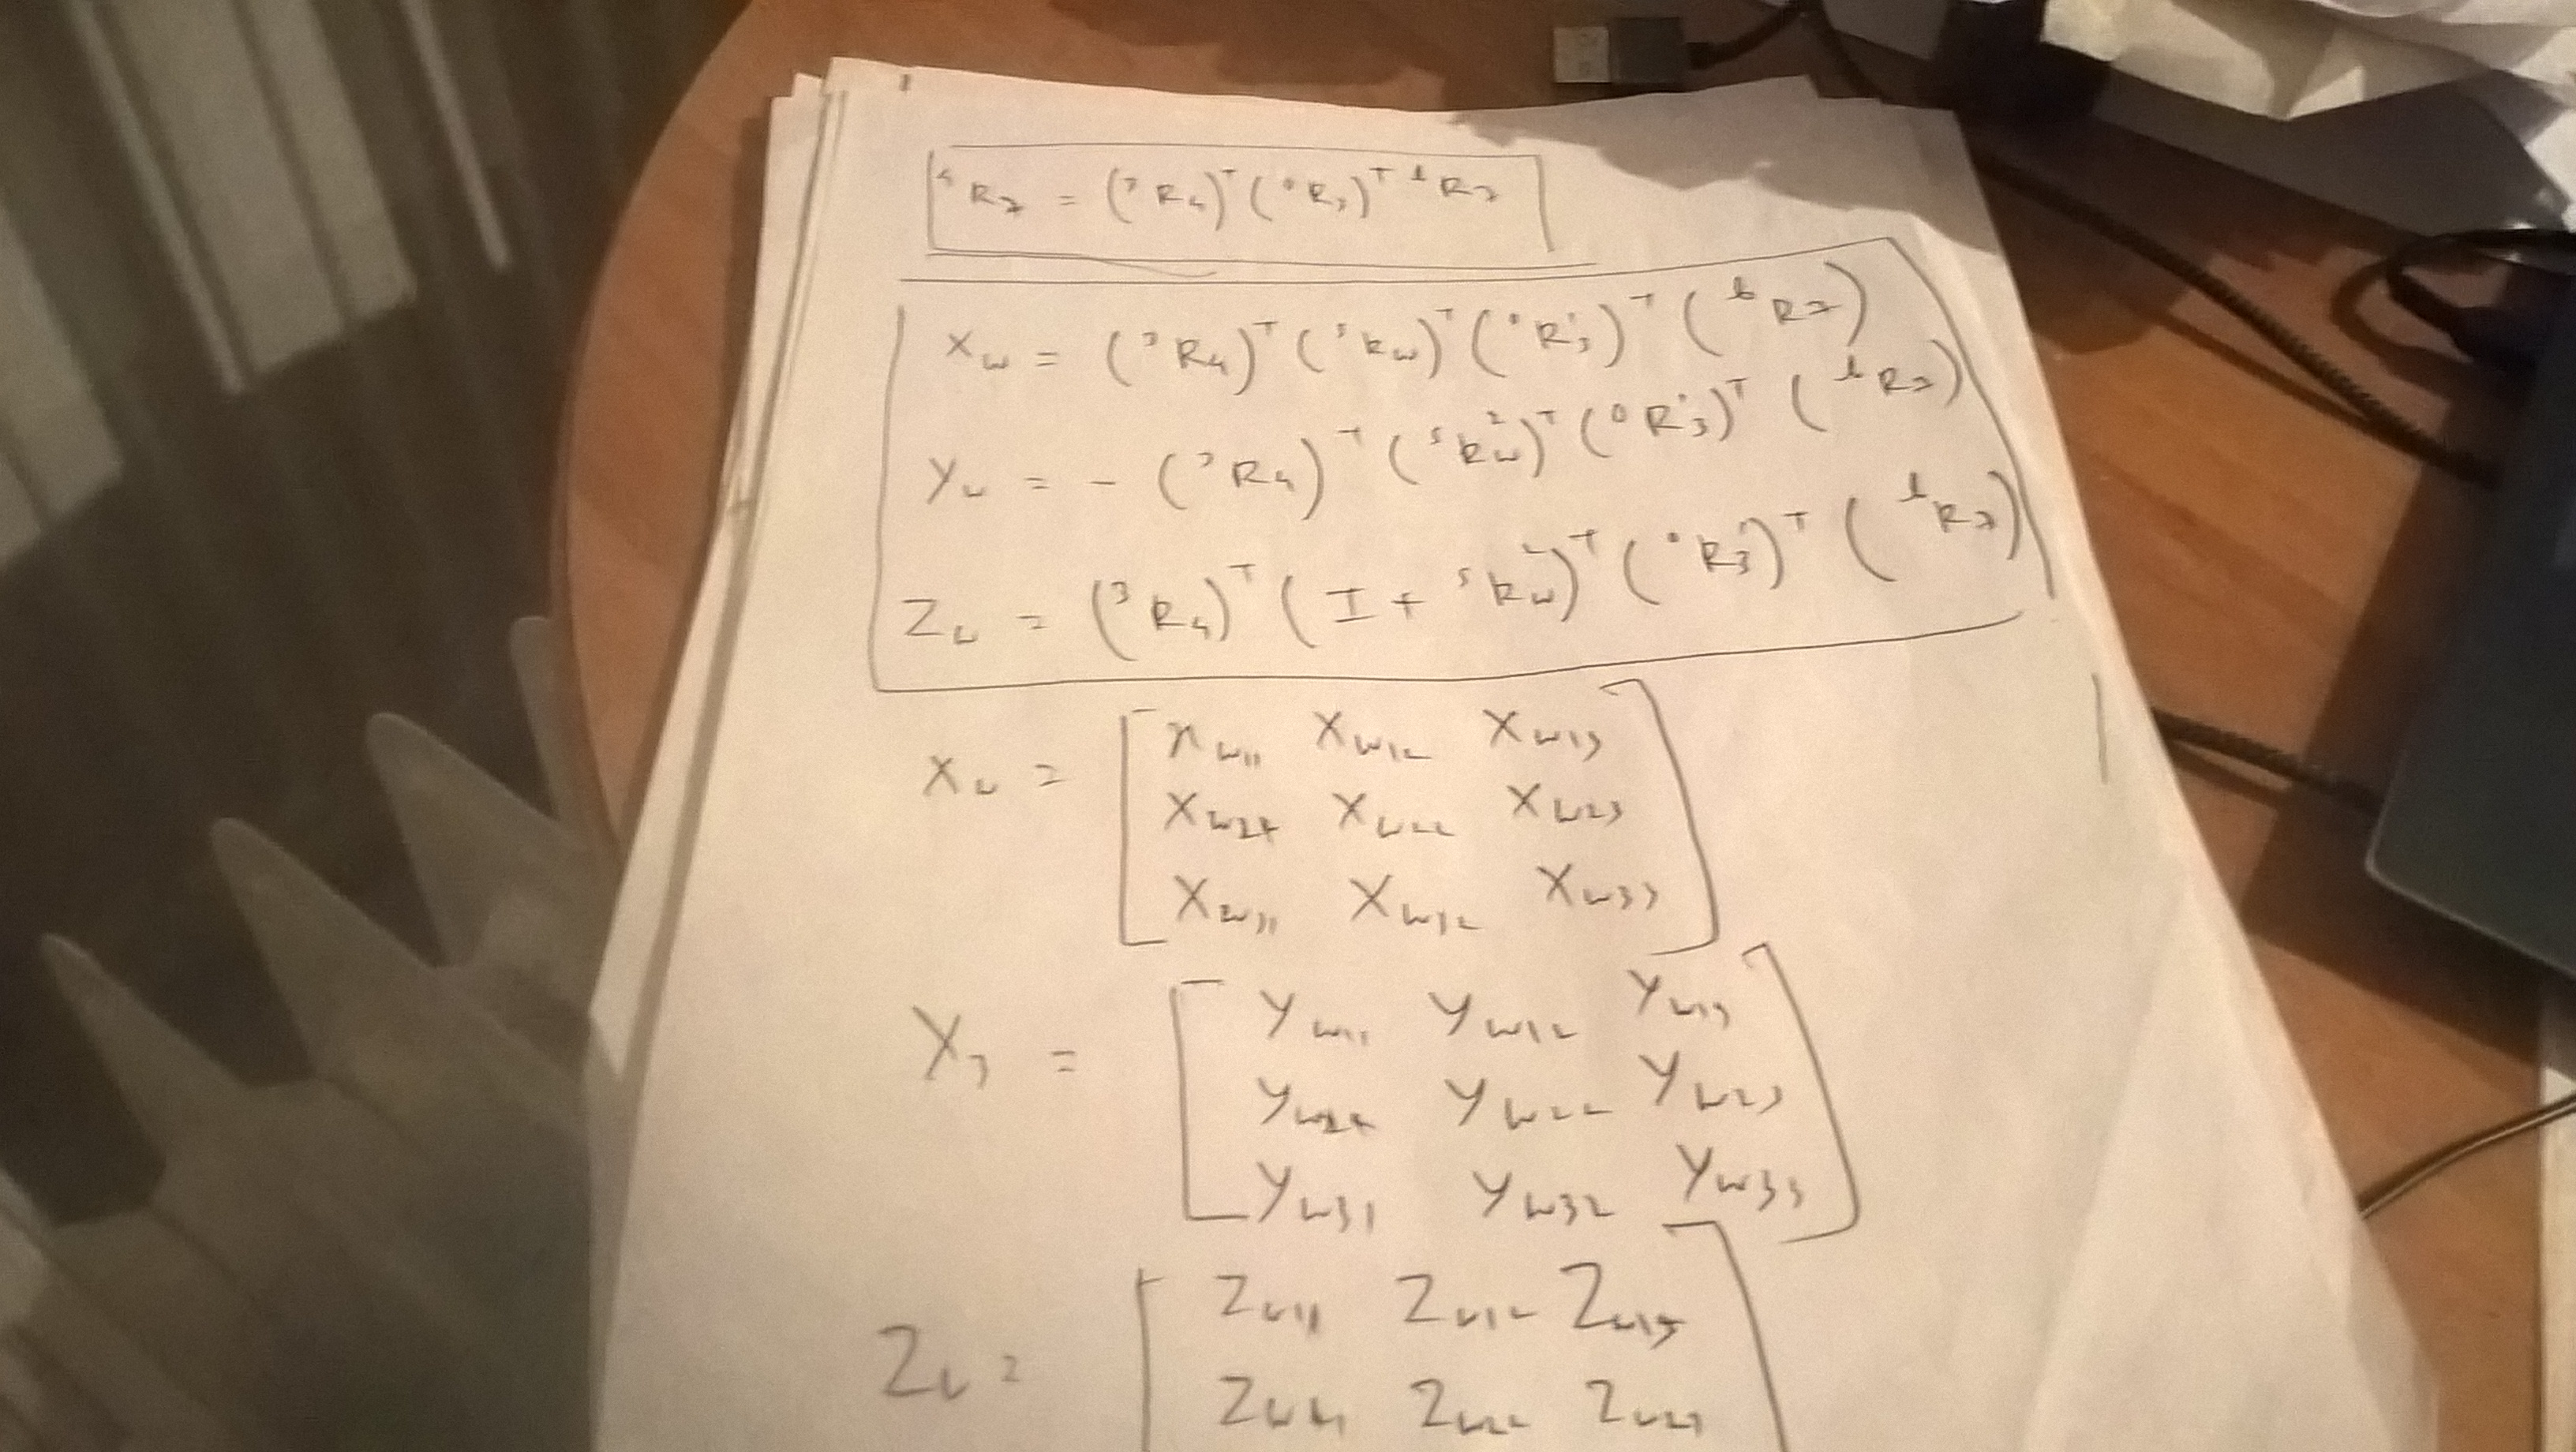 ⁴R₇ = (³R₄)ᵀ (⁰R₃)ᵀ ᵇR₇
X_w = (³R₄)ᵀ (ˢk_w)ᵀ (⁰R'₃)ᵀ (ᵇR₇)
Y_w = - (³R₄)ᵀ (ˢk²_w)ᵀ (⁰R'₃)ᵀ (ᵇR₇)
Z_w = (³R₄)ᵀ (I + ˢk²_w)ᵀ (⁰R'₃)ᵀ (ᵇR₇)
X_w = [ x_w11 X_w12 X_w13
X_w21 X_w22 X_w23
X_w31 X_w32 X_w33 ]
= [ Y_w11 Y_w12 Y_w13
Y_w21 Y_w22 Y_w23
Y_w31 Y_w32 Y_w33 ]
Z_w = [ Z_w11 Z_w12 Z_w13
Z_w21 Z_w22 Z_w23